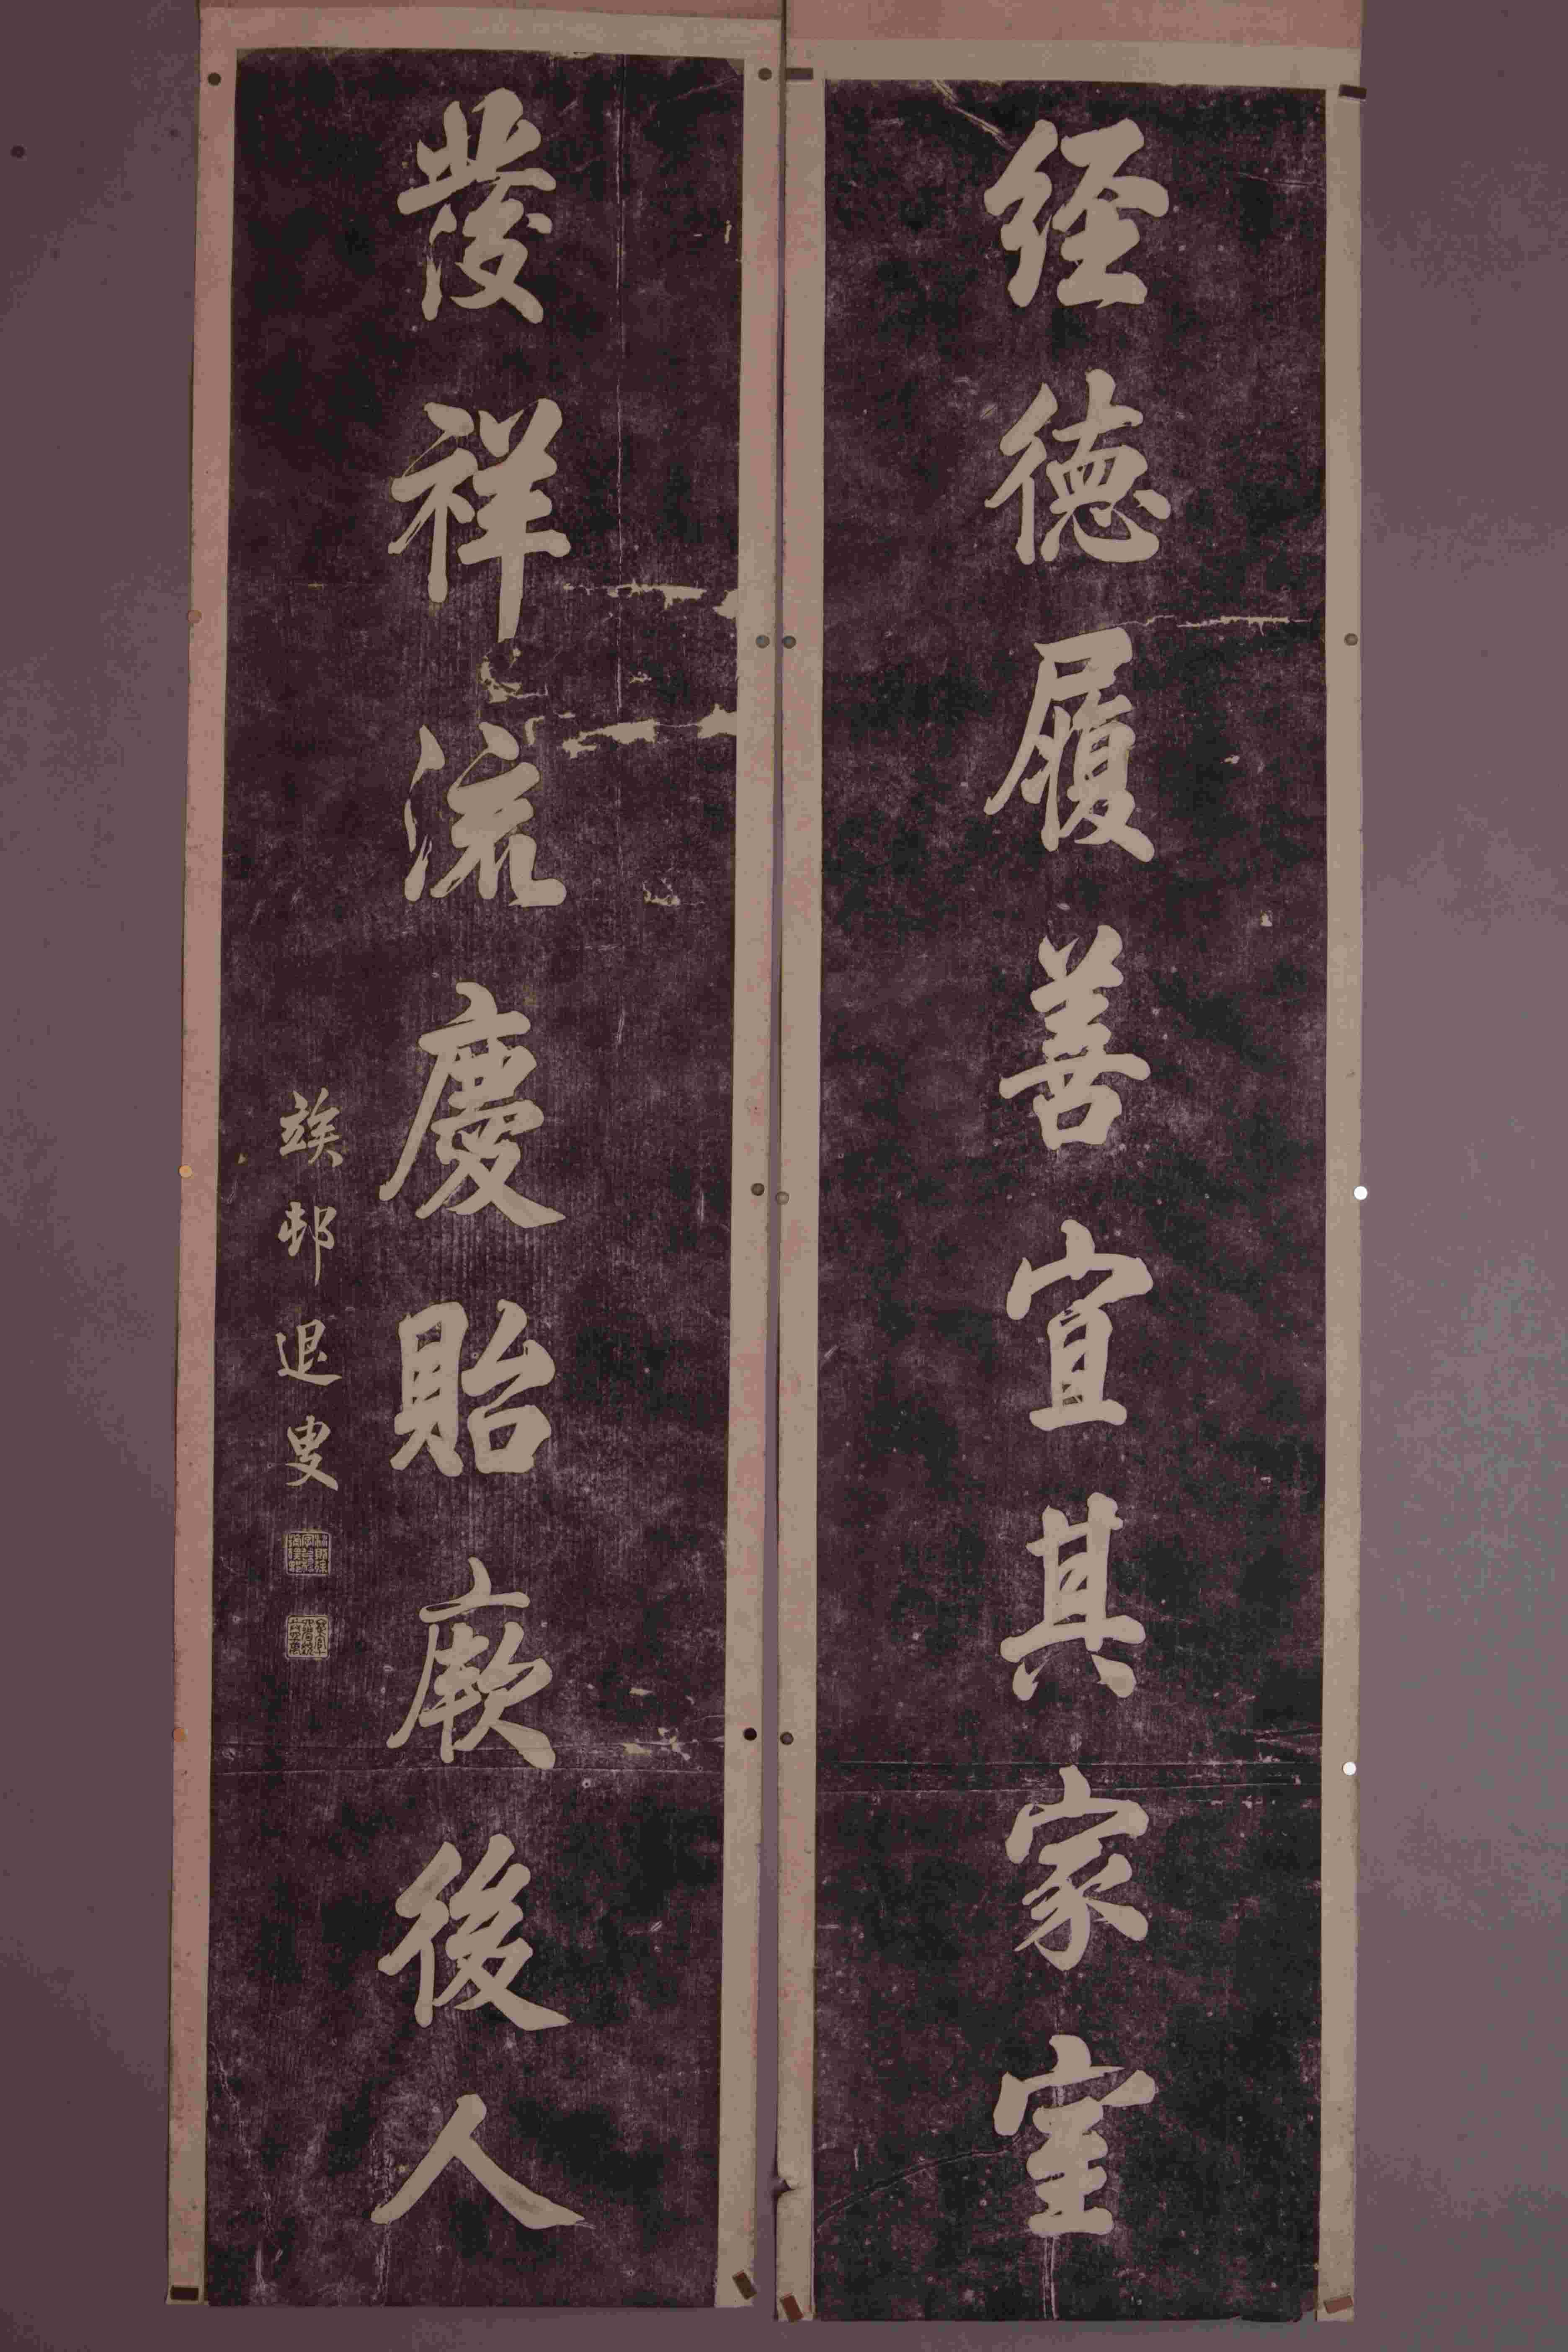 经德履善宜其家室
發祥流慶貽厥後人
竢邨退叟